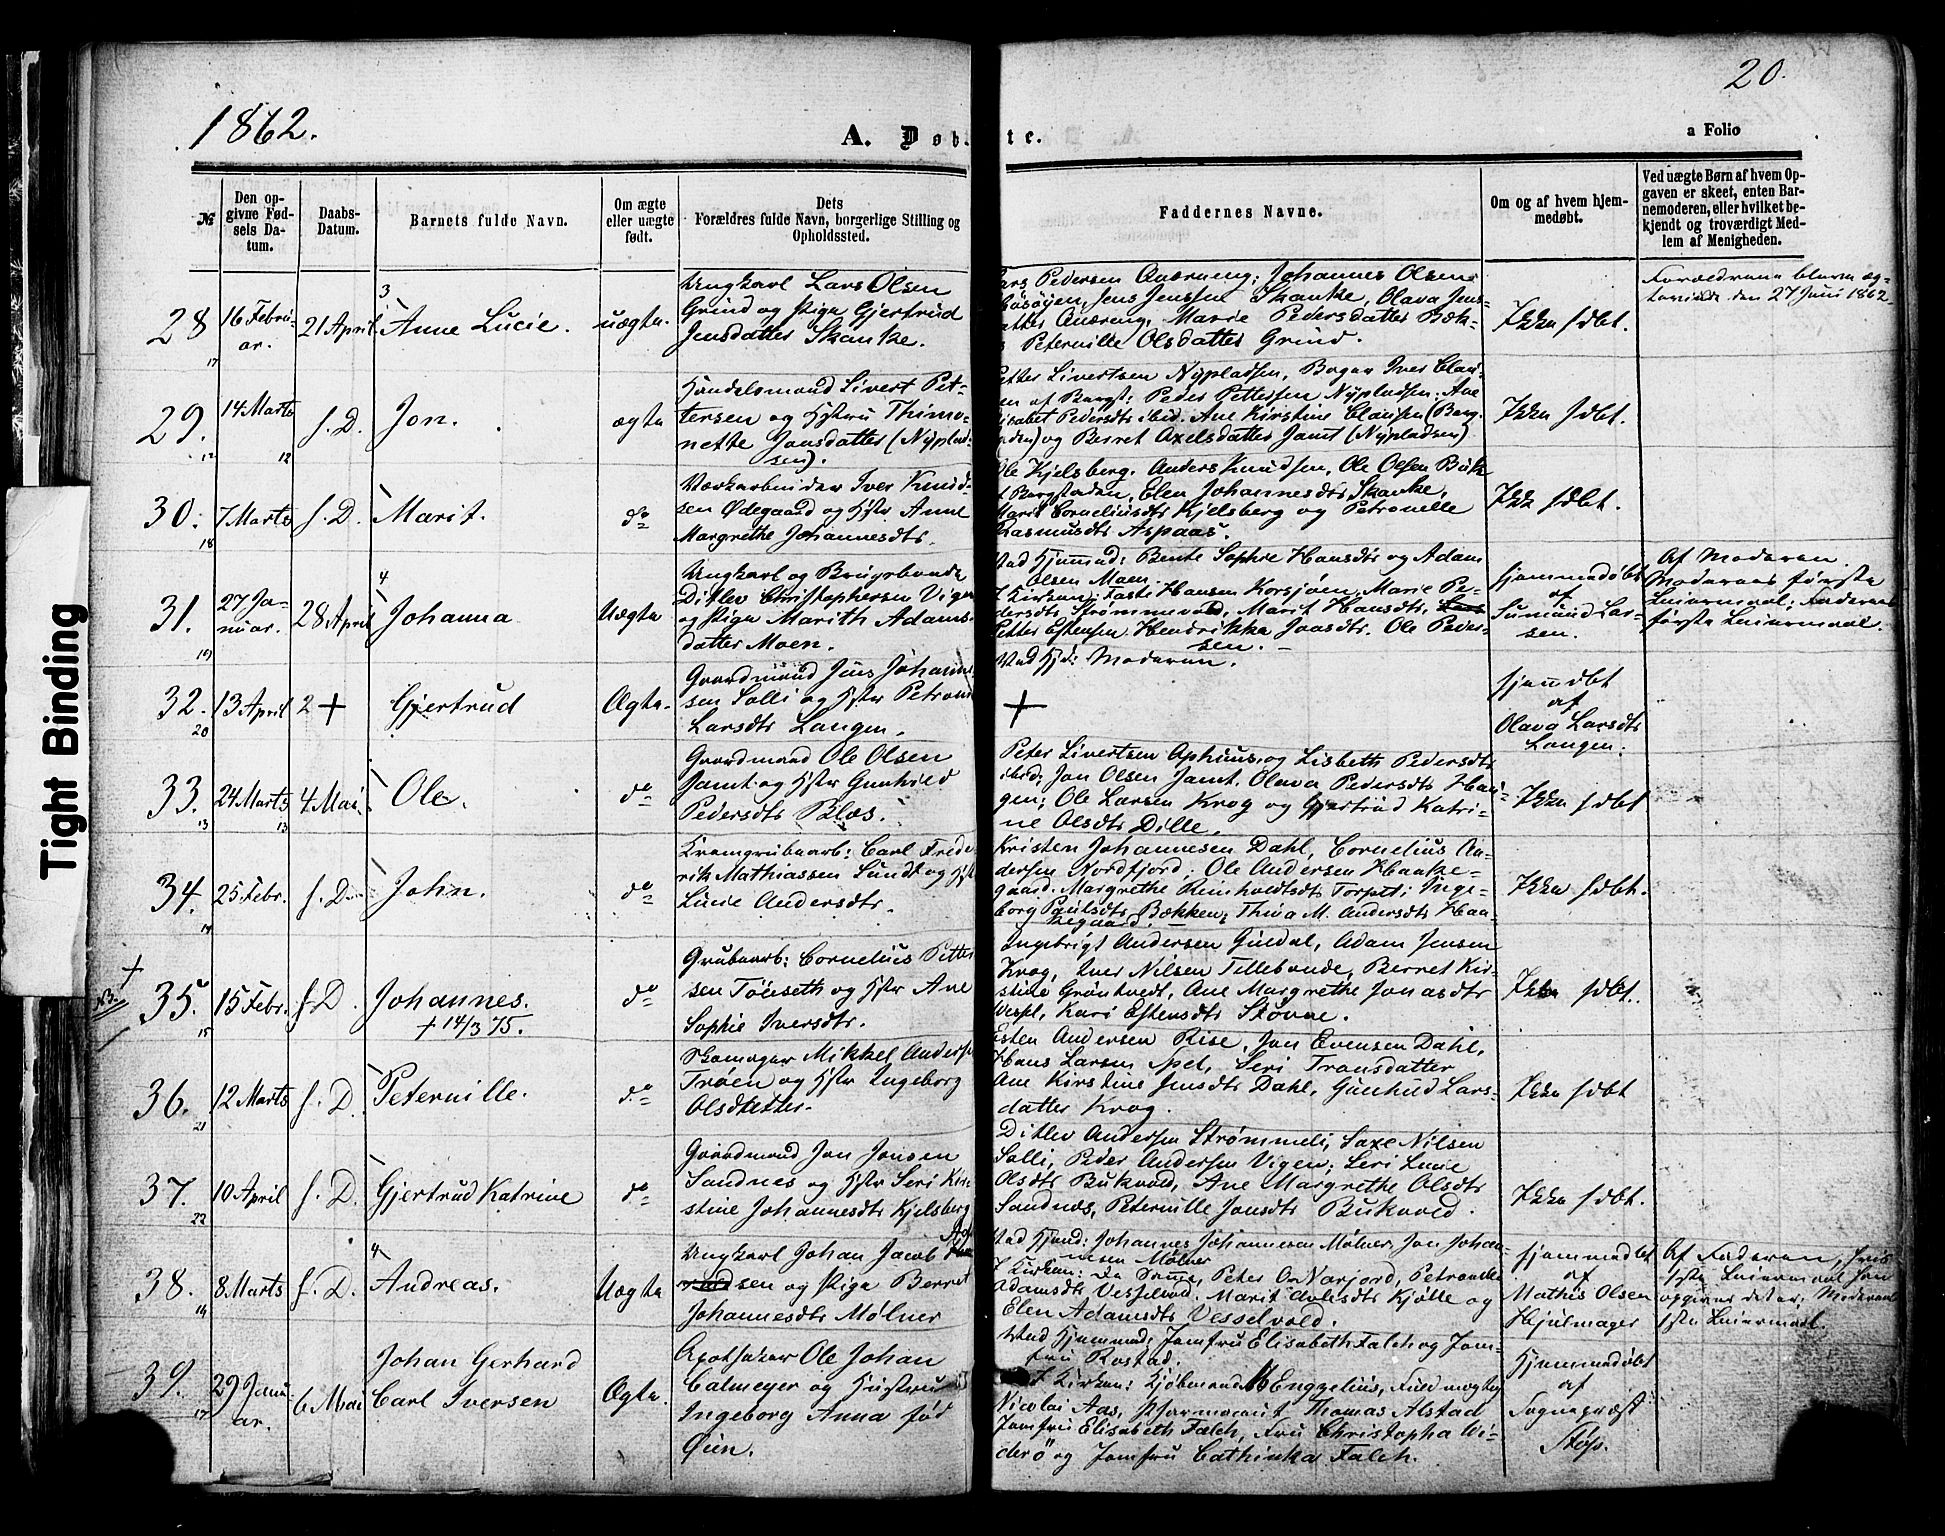 20.
1862.
A. Døb.
te.
a Folio
№
Den op-
givne Fød-
sels Da-
tum.
Daabs-
Datum.
Barnets fulde Navn.
Om ægte
eller uægte
født.
Dets
Forældres fulde Navn, borgerlige Stilling og
Opholdssted.
Faddernes Navne.
Om og af hvem hjem-
medøbt.
Ved uægte Børn af hvem Op-
gaven er skeet, enten Bar-
nemoderen, eller hvilket be-
kjendt og troværdigt Med-
lem af Menigheden.
28
17
16 Febru-
ar.
21 April
3
Anne Lucie.
uægte.
Ungkarl Lars Olsen
Grind og Pige Gjertrud
Jensdatter Skanke.
Pedersen Aasreng; Johannes Olsen
Jens Jenssen Skanke, Olava Jens-
datter Aasreng, Marie Pedersdatter Bæk-
Peternille Olsdatter Grind.
Ikke hdbt.
Forældrene bleve æg-
teviede den 27 Juni 1862.
29.
12
14 Marts
12
s. D.
Jon.
ægte
Handelsmand Sivert Pet-
tersen og Hstru Thimo-
nette Jonsdatter (Nyplad-
sen).
Petter Sivertsen Nypladsen, Iver Clau-
sen af Bergst: Peder Pettersen Nypladsen. Ane
Pedersdtr ibid. Ane Kirstine Clausen (Berg-
og Berret Axelsdatter Jamt (Nypladsen)
Ikke hdbt.
30.
18
7 Marts
s. D.
Marit.
do
Værkarbeider Iver Knud-
sen Ødegaard og Hstr Anne
Margrethe Johannesdtr.
Ole Kjelsberg. Anders Knudsen, Ole Olsen Buk
Bergstaden, Elen Johannesdtr Skanke,
Marit Corneliusdtr Kjelsberg og Petronelle
Rasmusdtr Aspaas.
Ikke hdbt.
31.
19
27 Ja-
nuar.
28 April
4
Johanna
Uægte
Ungkarl og Brugsbonde
Ditlev Christophersen Vigen
og Pige Marith Adams-
datter Moen.
Ved Hjemmed: Bente Sophie Hansdtr og Adam
Olsen Moen.
I Kirken: Hansen Korsjøen, Marie Pe-
dersdtr Strømmevold, Marit Hansdtr,
Petter Estensen Hendrikka Jonsdtr. Ole Peder-
sen.
Hjemmedøbt
af
Lar-
sen.
Af Moderen.
Moderens første
Leiermaal; Faderens
første Leiermaal.
32.
20
13 April
2 +
Gjertrud
Ægte.
Gaardmand Jens Johann
sen Solli og Hstr Petron
Larsdtr Langen.
Ved Hjd: Moderen.
+
Hjemdbt
af
Olava Larsdtr
Langen.
33.
13
24 Marts
13
4 Mai.
Ole.
do
Gaardmand Ole Olsen
Jamt og Hstr Gunhild
Pedersdtr Blæs.
Peter Sivertsen og Lisbeth Pedersdtr
ibid; Jon Olsen Jamt, Olava Pedersdtr Hau-
gen; Ole Larsen Krog og Gjertrud Katri-
ne Olsdtr Dille.
Ikke hdbt
34.
14
25 Febr.
s. D.
John.
do
Kromgrubearb: Carl Frede
rik Mathiassen Sundt og Hstr
Lucie Andersdtr.
Kristen Johannesen Dahl, Cornelius An-
dersen Nordfjord, Ole Andersen Haake-
gaard. Margrethe Reinholdtsdtr Torpet; Inge-
borg Paulsdtr Bækken; Thea M. Andersdtr Haa-
kegaard.
Ikke hdbt.
+
NB.
35.
15
15 Febr.
s. D.
Johannes.
+ 14/3 75.
do
Grubearb: Cornelius Petter
sen Tøiseth og Hstr Ane
Sophie Iversdtr.
Ingebrigt Andersen Guldal, Adam Jensen
Krog, Iver Nilsen Tillebonde, Berret Kir-
stine Grøntvedt, Ane Margrethe Jonasdtr
Kari Estensdtr Støvne.
Ikke hdbt.
36.
21
12 Marts
s. D.
Peternille.
do
Skomager Mikkel Anders
Trøen og Hstr Ingeborg
Olsdatter.
Esten Andersen Rise, Jon Evensen Dahl,
Hans Larsen Spel, Seri Tronsdatter
Ane Kirstine Jensdtr Dahl, Gunhild Lars-
datter Krog.
Ikke hdbt
37.
22
10 April
s. D.
Gjertrud Katrine
do
Gaardmand Jon Jonsen
Sandnes og Hstr Seri Kir
stine Johannesdtr Kjelsberg
Ditlev Andersen Strømmeli, Saxe Nilsen
Solli, Peder Andersen Vigen; Seri Lucie
Olsdtr Bukvold, Ane Margrethe Olsdtr
Sandnes, Peternille Jonsdtr Bukvold.
Ikke hdbt.
38.
16
8 Marts
s. D.
4
Andreas.
Uægte
Ungkarl Johan Jacob
sen og Pige Berret
Johannesdtr Mølner
Ved Hjemd: Johannes Johannesen Mølner, Jon Johan
nesen Mølner
I Kirken: De Samme, Peter O. Narjord, Petronelle
Adamsdtr Vesselvold. Marit Kjølle og
Elen Adamsdtr Vesselvold.
Hjemmedøbt
af
Mathis Olsen
Hjulmager
Af Faderen,
1ste Leiermaal han
opgiver det er; Moderens
1ste Leiermaal.
39.
17
29 Janu-
ar.
6 Mai
Johan Gerhard
Carl Iversen
Ægte.
Apotheker Ole Johan
Calmeyer og Hustru
Ingeborg Anna fød
Øien.
Ved Hjemmed: Jomfru Elisabeth Falch og Jom-
fru Rostad.
I Kirken: Kjøbmand Engzelius, Fuldmægtig
Nicolai Aas, Pharmaceut Thomas Alstad
Jomfru Elisabeth Falch, Fru Christopha Wi-
derø og Jomfru Cathinka Falch.
Hjemmedøbt
af
Sognepræst
Støp.
Tight Binding